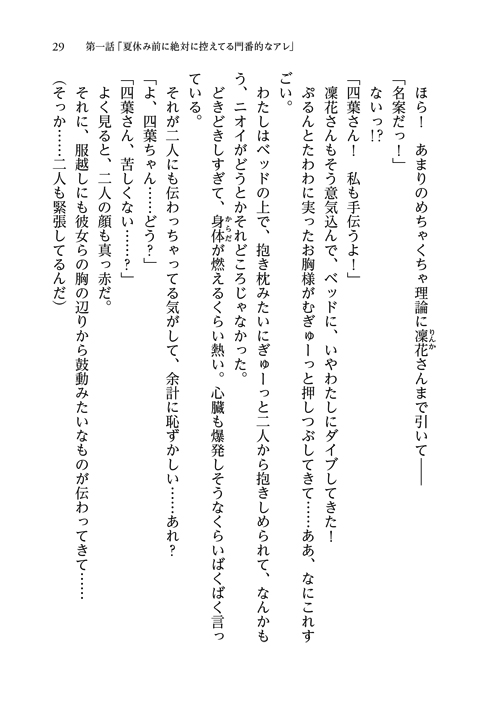 29　第一話「夏休み前に絶対に控えてる門番的なアレ」
ほら！　あまりのめちゃくちゃ理論に凜花さんまで引いて――
りんか
「名案だっ！」
ないっ!?
「四葉さん！　私も手伝うよ！」
凜花さんもそう意気込んで、ベッドに、いやわたしにダイブしてきた！
ぷるんとたわわに実ったお胸様がむぎゅーっと押しつぶしてきて……ああ、なにこれす
ごい。
わたしはベッドの上で、抱き枕みたいにぎゅーっと二人から抱きしめられて、なんかも
う、ニオイがどうとかそれどころじゃなかった。
どきどきしすぎて、身体が燃えるくらい熱い。心臓も爆発しそうなくらいばくばく言っ
からだ
ている。
それが二人にも伝わっちゃってる気がして、余計に恥ずかしい……あれ？
「よ、四葉ちゃん……どう？」
「四葉さん、苦しくない……？」
よく見ると、二人の顔も真っ赤だ。
それに、服越しにも彼女らの胸の辺りから鼓動みたいなものが伝わってきて……
（そっか……二人も緊張してるんだ）